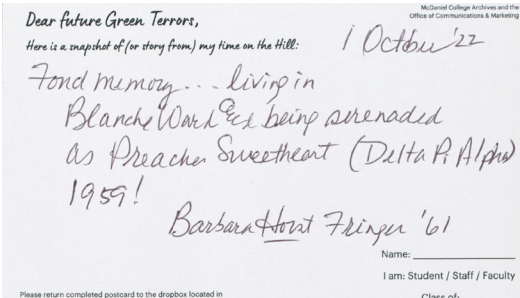 McDaniel College Archives and the
Office of Communications & Marketing
Dear future Green Terrors,
Here is a snapshot of (or story from) my time on the Hill:
1 October '22
Fond memory... living in
Blanche Ward & being serenaded
as Preacher Sweetheart (Delta Pi Alpha)
1959!
Barbara Horst Fringer '61
Name:
I am: Student / Staff / Faculty
Please return completed postcard to the dropbox located in
Class of: